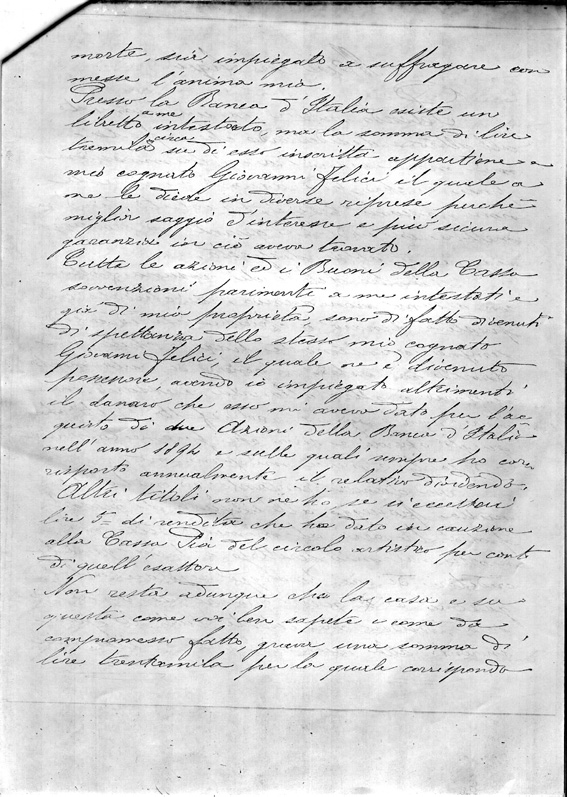 morte, sia impiegato a suffragare con
messe l'anima mia.
Presso la Banca d'Italia esiste un
libretto a me intestato, ma la somma di lire
tremila circa su di esso inscritta appartiene a
mio cognato Giovanni Felici il quale a
me le diede in diverse riprese perchè
miglior saggio d'interesse e più sicure
garanzie in ciò aveva trovato.
Tutte le azioni ed i Buoni della Cassa
sovvenzioni parimenti a me intestati e
già di mia proprietà, sono di fatto divenuti
di spettanza dello stesso mio cognato
Giovanni Felici, il quale ne è divenuto
possessore, avendo io impiegato altrimenti
il danaro che esso mi aveva dato per l'ac=
quisto di due Azioni della Banca d'Italia
nell'anno 1894 e sulle quali sempre ho cor=
risposto annualmente il relativo dividendo.
Altri titoli non ne ho se si eccettui
lire 5= di rendita che ho dato in cauzione
alla Cassa Pia del circolo artistico per conto
di quell'esattore
Non resta adunque che la casa e su
questa come voi ben sapete e come da
compromesso fatto, grava una somma di
lire trentamila per la quale corrispondo